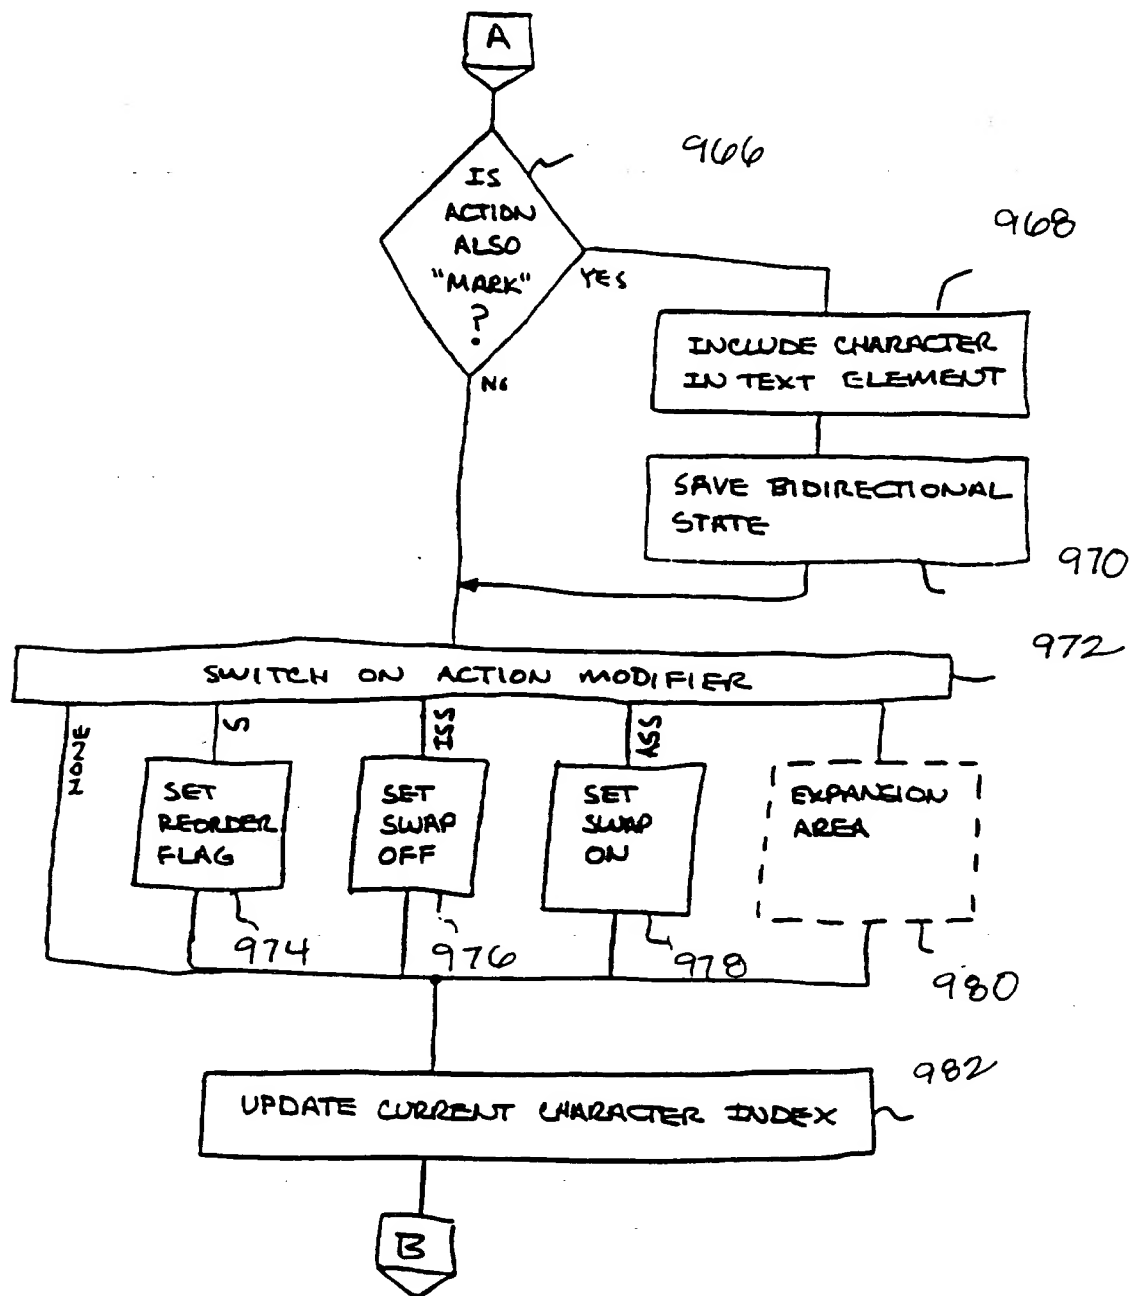 A
966
IS
ACTION
ALSO
"MARK"
?
YES
NO
968
INCLUDE CHARACTER
IN TEXT ELEMENT
SAVE BIDIRECTIONAL
STATE
970
972
SWITCH ON ACTION MODIFIER
NONE
S
ISS
ASS
SET
REORDER
FLAG
SET
SWAP
OFF
SET
SWAP
ON
EXPANSION
AREA
974
976
978
980
982
UPDATE CURRENT CHARACTER INDEX
B